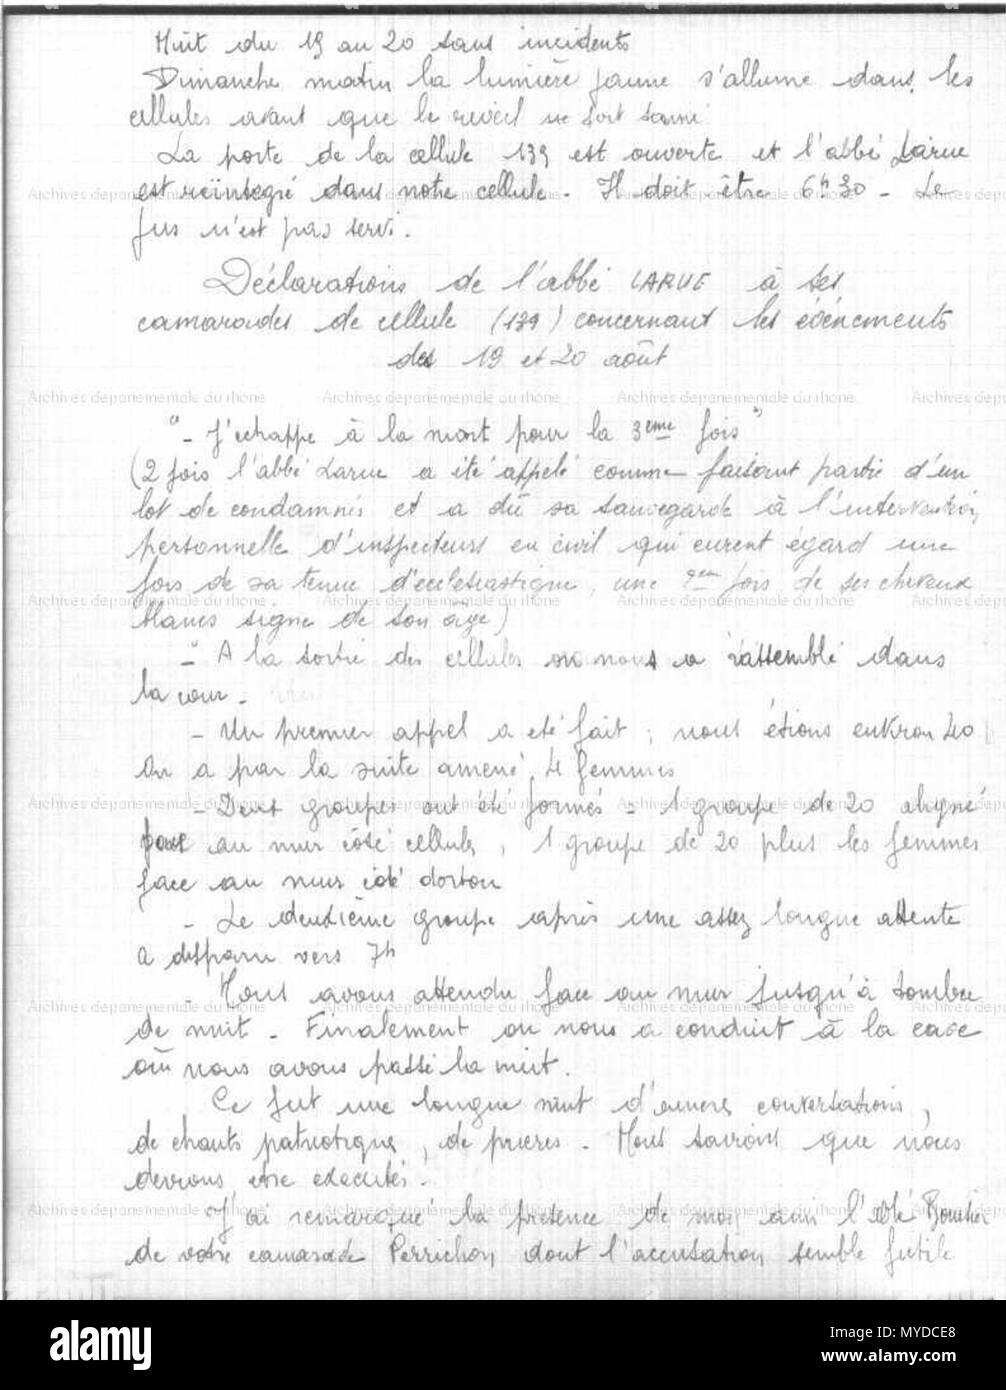 Nuit du 19 au 20 sans incidents
Dimanche matin la lumière jaune s'allume dans les
cellules avant que le réveil ne soit sonné
La porte de la cellule 139 est ouverte et l'abbé Larue
est reïntegré dans notre cellule - Il doit être 6h30 - Le
jus n'est pas servi.
Déclarations de l'abbé LARUE à ses
camarades de cellule (139) concernant les événements
des 19 et 20 août
Archives départementale du rhone
"- J'echappe à la mort pour la 3eme fois"
(2 fois l'abbé Larue a été appelé comme faisant partie d'un
lot de condamnés et a dû sa sauvegarde à l'intervention
personnelle d'inspecteurs en civil qui eurent égard une
fois de sa tenue d'ecclésiastique, une 2em fois de ses cheveux
blancs signe de son âge)
"- A la sortie des cellules on nous a rassemblé dans
la cour -
- Un premier appel a été fait ; nous étions environ 40
On a par la suite amené 4 femmes
- Deux groupes ont été formés = 1 groupe de 20 aligné
face au mur côté cellules, 1 groupe de 20 plus les femmes
face au mur côté dortoir
- Le deuxième groupe après une assez longue attente
a disparu vers 7h
- Nous avons attendu face au mur jusqu'à tombée
de nuit - Finalement on nous a conduit à la cave
où nous avons passé la nuit.
Ce fut une longue nuit d'amères conversations,
de chants patriotiques, de prières - Nous savions que nous
devrions être executés.
J'ai remarqué la présence de mon ami l'abbé Boursier
de votre camarade Perrichon dont l'accusation semble futile
alamy
Image ID: MYDCE8
www.alamy.com